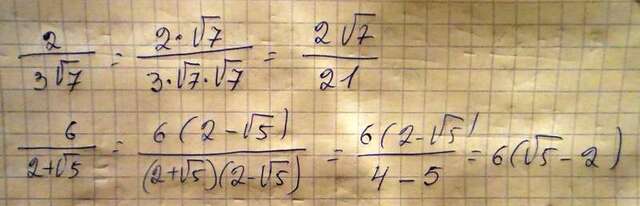 2/(3√7) = (2·√7)/(3·√7·√7) = (2√7)/21
6/(2+√5) = (6(2-√5))/((2+√5)(2-√5)) = (6(2-√5))/(4-5) = 6(√5-2)